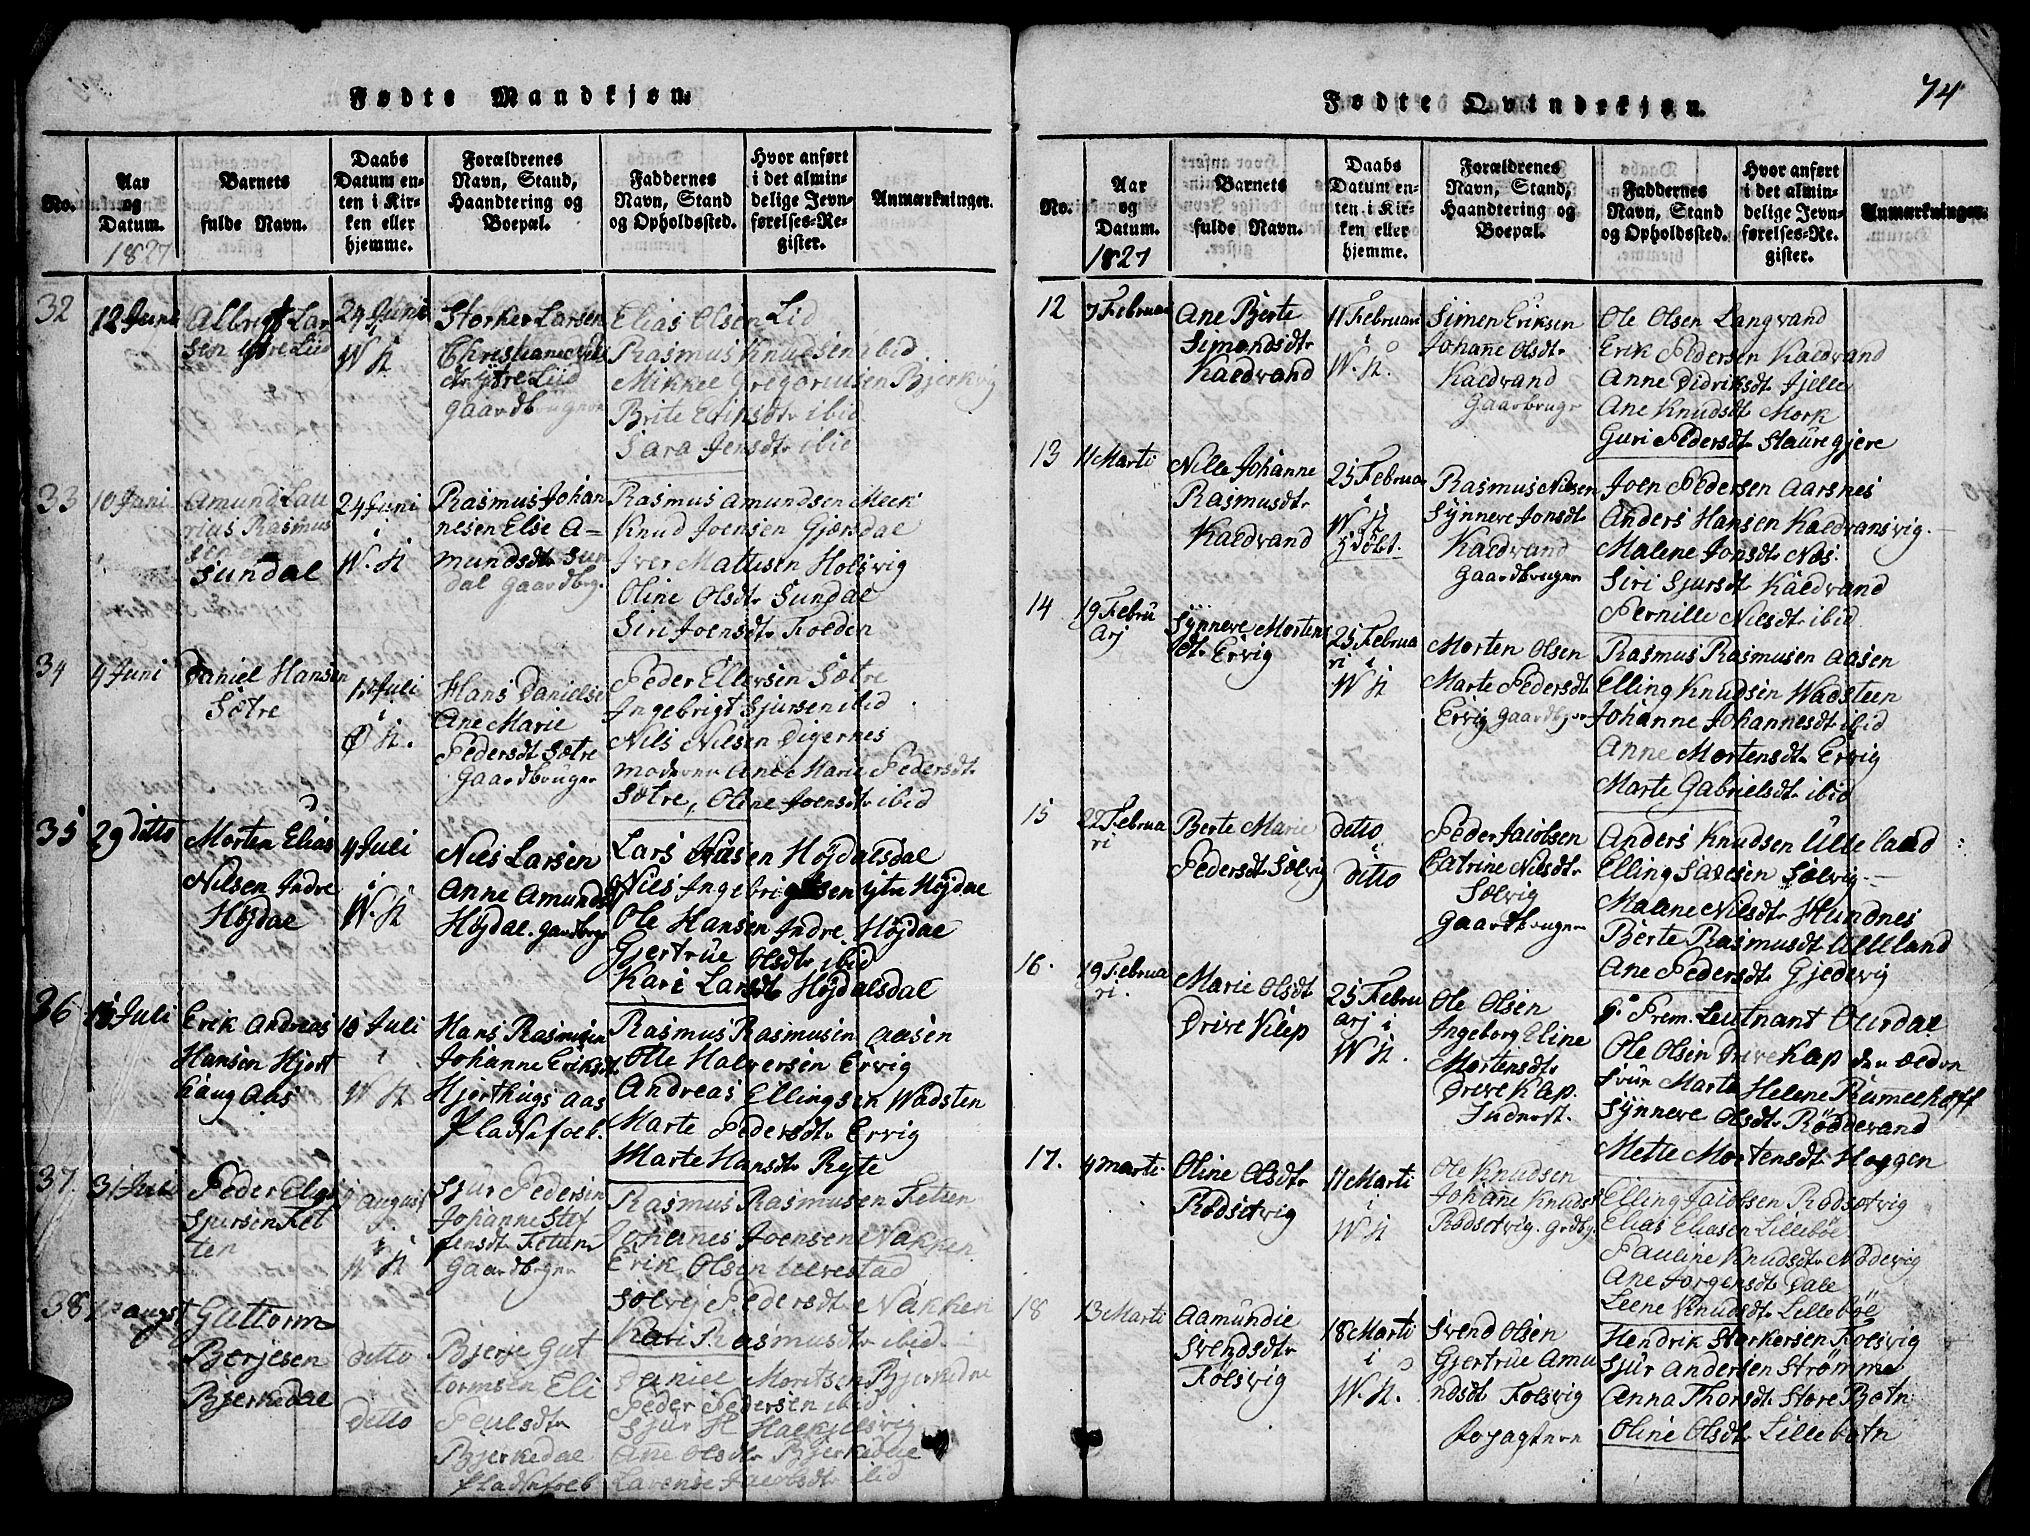 Fødte Mandkjøn.
No.
Aar og Datum.
1827
Barnets fulde Navn.
Daabs Datum enten i Kirken eller hjemme.
Forældrenes Navn, Stand, Haandtering og Boepæl.
Faddernes Navn, Stand og Opholdssted.
Hvor anført i det almindelige Jevnførelses-Register.
Anmærkninger.
32
12 Juni
Albrigt Lar
sen Ytre Liid
24 Juni
i
W. K
Storker Larsen
Christiane
Ytre Liid
Gaardbruger
Elias Olsen Lid
Rasmus Knudsen ibid
Mikkel Gregoriusen Bjerkvig
Brite Eriksdtr ibid
Sara Jensdtr ibid
33
10 Juni
Amund Lau
rius Rasmus
sen
Sundal
24 Juni
i
W. K
Rasmus Johan
nesen Else A-
mundsdtr Sun
dal Gaardbrgr
Rasmus Amundsen Meek
Knud Joensen Gjærsdal
Iver Mattisen Holsvig
Oline Olsdtr Sundal
Siri Joensdtr Folden
34
9 Juni
Daniel Hansen
Sætre
17 Juli
i
Ø K.
Hans Danielse
Ane Marie
Pedersdt Sætre
Gaardbruger
Peder Ellersen Sætre
Ingebrigt Sjursen ibid
Nils Nilsen Digernes
moderen Ane Marie Pedersdtr
Sætre, Oline Joensdtr ibid
35
29 Ditto
Morten Elias
Nilsen Indre
Højdal
4 Juli
i
W. K
Nils Larsen
Anne Amunds
Højdal. Gaardbrgr
Lars Nilsen Højdalsdal
Nils Ingebrigtsen ytre Højdal
Ole Hansen Indre Højdal
Gjertrue Olsdtr ibid
Kari Larsdt Højdalsdal
36
Juli
Erik Andreas
Hansen Hjort
haug Aas
Juli
i
W K
Hans Rasmusen
Johanne Eriksdt
Hjorthugs aas
Pladsefoel.
Rasmus Rasmusen Aasen
Olle Halversen Ervig
Andreas Ellingsen Wadsten
Marte Pedersdtr Ervig
Marte Hansdtr Rejte
37
31 Juli
Peder Elias
Sjursen Fet
ten
August
i
W K
Sjur Pedersen
Johanne Stef
fensdt Feten
Gaardbrger
Rasmus Rasmusen Fetten
Johanes Joensen Nakken
Erik Olsen Ulvestad
Sølvej Pedersdtr Nakken
Kari Rasmusdtr ibid
38
augst
Guttorm
Berjesen
Bjerkedal
Ditto
i
Ditto
Bjerje Gut
tormsen Eli
Poulsdtr
Bjerkedal
Pladsefoel
Daniel Moritsen Bjerkedal
Peder Pedersen ibid
Sjur H Haekjelsvig
Ane Olsdtr Bjerkedal
Larense Jacobsdt ibid
Fødte Qvindekjøn.
74
No.
Aar og Datum.
1827
Barnets fulde Navn.
Daabs Datum enten i Kirken eller hjemme.
Forældrenes Navn, Stand, Haandtering og Boepæl.
Faddernes Navn, Stand og Opholdssted.
Hvor anført i det almindelige Jevnførelses-Register.
Anmærkninger.
12
7 Februar
Ane Berte
Simonsdtr
Kaldvand
11 Februari
i
W. K.
Simen Eriksen
Johanne Olsdtr
Kaldvand
Gaarbrugr
Ole Olsen Langvand
Erik Pedersen Kaldvand
Anne Didriksdtr Fjelle
Ane Knudsdtr Mork
Guri Pedersdtr Stauregjere
13
11 Marti
Nille Johanne
Rasmusdtr
Kaldvand
25 Februa
i
W K
Rasmus Nilsen
Synneve Jonsdtr
Kaldvand
Gaardbruger
Joen Pedersen Aarsnes
Anders Hansen Kaldvansvig
Malene Jonsdtr Næs
Siri Sjursdt Kaldvand
Pernille Nilsdtr ibid
14
19 Febru
arj
Synneve Mortens
dtr Ervig
25 Februa
ri i
W K
Morten Olsen
Marte Pedersdt
Ervig
Rasmus Rasmusen Aasen
Elling Knudsen Wadsteen
Johanne Johannesdt ibid
Anne Mortensdtr Ervig
Marte Gabrielsdtr ibid
15
22 Februa
ri
Berte Marie
Pedersdt Sølvig
ditto
i
ditto
Peder Jacobsen
Catrine Nilsdtr
Sølvig
Gaardbruger
Anders Knudsen Ulleland
Elling Larsen Sølvig
Malene Nilsdtr Hundnes
Berte Rasmusdt Ulleland
Ane Pedersdtr Gjedevig
16.
19 Februa
ri.
Marie Olsdt
Drive Klep
25 Febru
arj i
W K.
Ole Olsen
Ingeborg Eline
Mortensdtr
Drive Klep.
Inderst.
Prem. Leutnant Ourdal
Ole Olsen Drive Klep den ældre
Frue Marte Helene Rumelhoff
Synneve Olsdtr Røddevand
Mette Mortensdtr Haggen
17.
4 marti
Oline Olsdtr
Rødsetvig
11 Marti
i
W K
Ole Knudsen
Johanne Knuds
Rødsetvig. Grdbr
Elling Jacobsen Rødsetvig
Elias Eliasen Lillebøe
Pauline Knudsdtr Nødevig
Ane Jorgensdtr Dale
Leene Knudsdtr Lillebøe
18
13 Marti
Aamundie
Svendsdtr
Følsvig
18 Marti
i
W. K.
Svend Olsen
Gjertrue Amu
ndsdt Folsvig
Hendrik Storkersen Følsvig
Sjur Andersen Strømme
Anna Thorsdt Store Botn
Oline Olsdtr Lillebotn